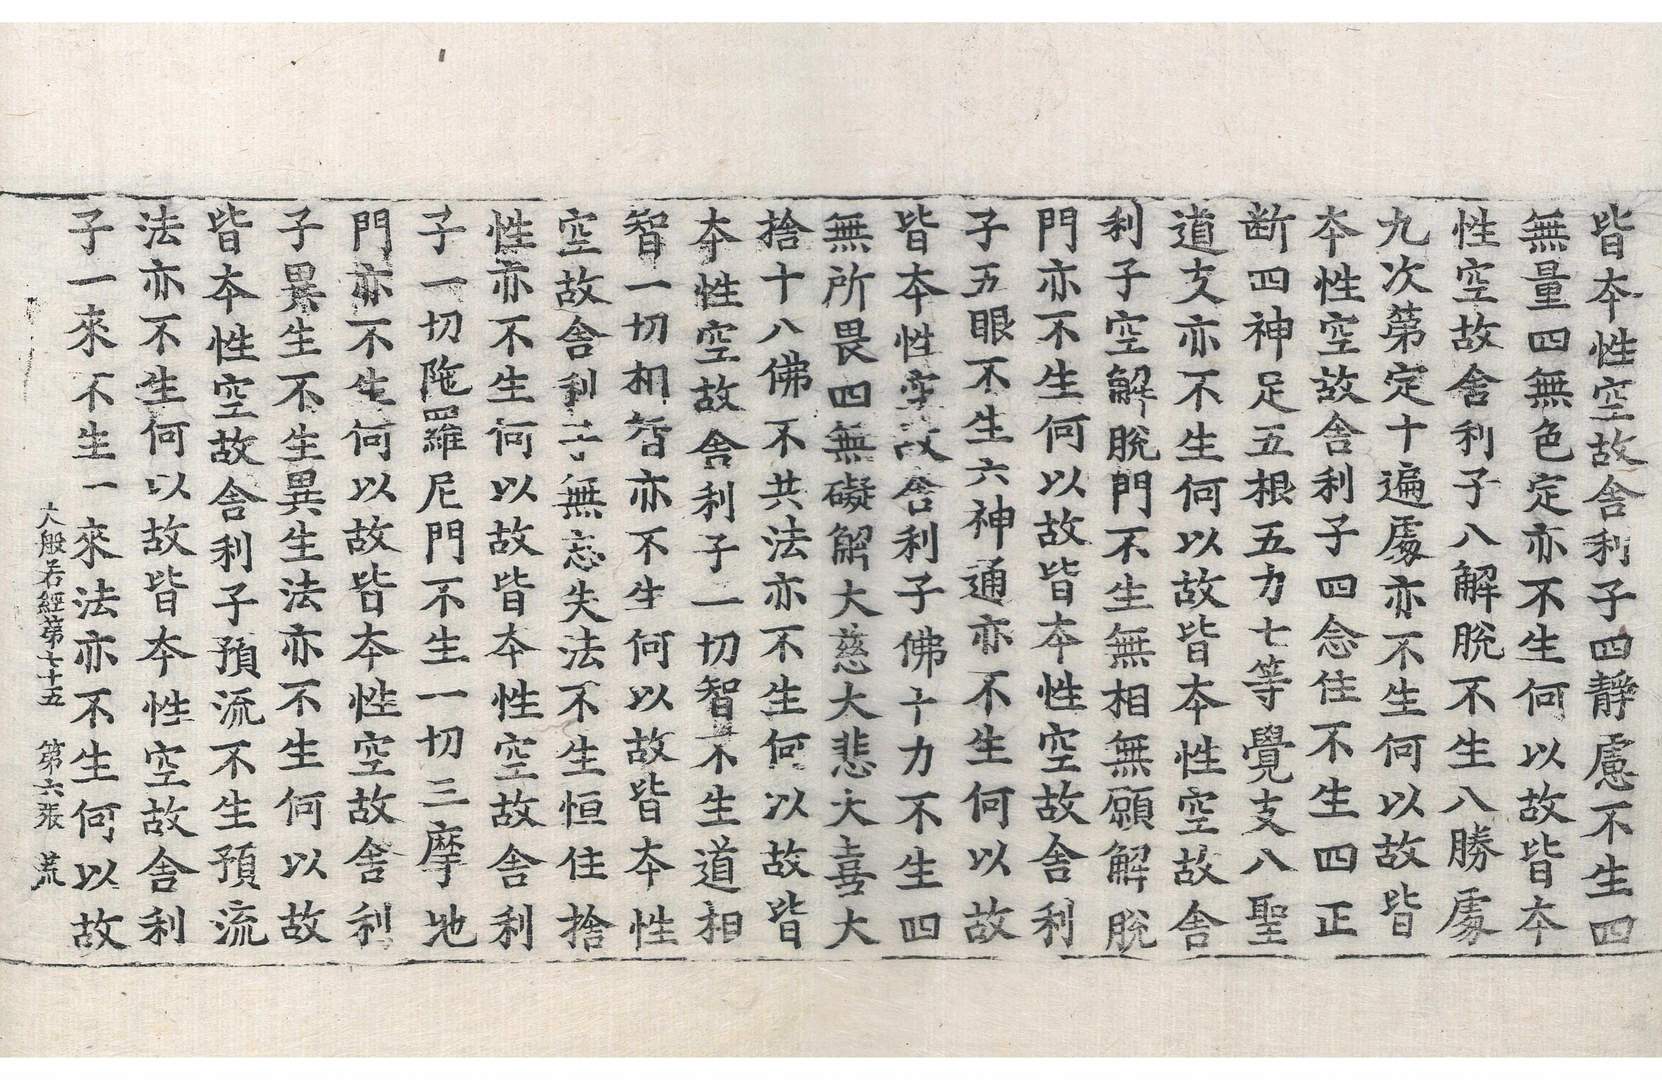 皆本性空故舍利子四靜慮不生四
無量四無色定亦不生何以故皆本
性空故舍利子八解脫不生八勝處
九次第定十遍處亦不生何以故皆
本性空故舍利子四念住不生四正
断四神足五根五力七等覺支八聖
道支亦不生何以故皆本性空故舍
利子空解脫門不生無相無願解脫
門亦不生何以故皆本性空故舍利
子五眼不生六神通亦不生何以故
皆本性空故舍利子佛十力不生四
無所畏四無礙解大慈大悲大喜大
捨十八佛不共法亦不生何以故皆
本性空故舍利子一切智不生道相
智一切相智亦不生何以故皆本性
空故舍利子無忘失法不生恒住捨
性亦不生何以故皆本性空故舍利
子一切陁羅尼門不生一切三摩地
門亦不生何以故皆本性空故舍利
子異生不生異生法亦不生何以故
皆本性空故舍利子預流不生預流
法亦不生何以故皆本性空故舍利
子一來不生一來法亦不生何以故
大般若經第七十五 第六張 荒